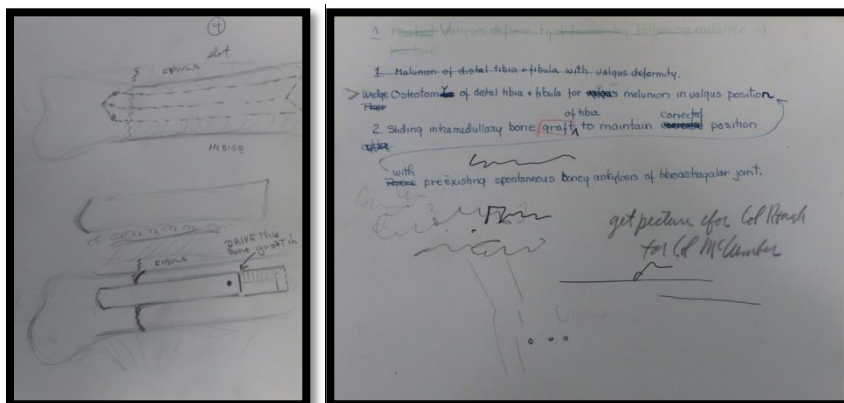 4
slot
FIBULA
INSIDE
DRIVE THIS
bone graft in
FIBULA
1 Marked Valgus deformity following malunion of
fracture
1. Malunion of distal tibia + fibula with valgus deformity.
Wedge Osteotomy of distal tibia + fibula for malunion in valgus position
of tibia
corrected
2. Sliding intramedullary bone graft to maintain position
with
preexisting spontaneous boney ankylosis of tibioastragalar joint.
get picture for Col
for Col McCumber